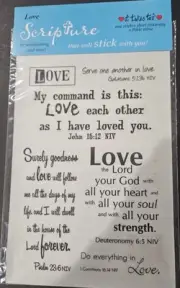 Love
Scripture
that will stick with you!
LOVE
Serve one another in love.
Galatians 5:13b NIV
My command is this:
Love each other
as I have loved you.
John 15:12 NIV
Surely goodness
and love will follow
me all the days of my
life, and I will dwell
in the house of the
Lord forever.
Psalm 23:6 NIV
Love
the Lord
your God with
all your heart and
with all your soul
and with all your
strength.
Deuteronomy 6:5 NIV
Do everything in
Love.
1 Corinthians 16:14 NIV